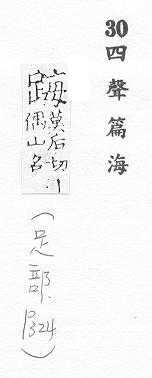 30 四聲篇海
踇莫后切丨
偶山名
(足部. P.324)